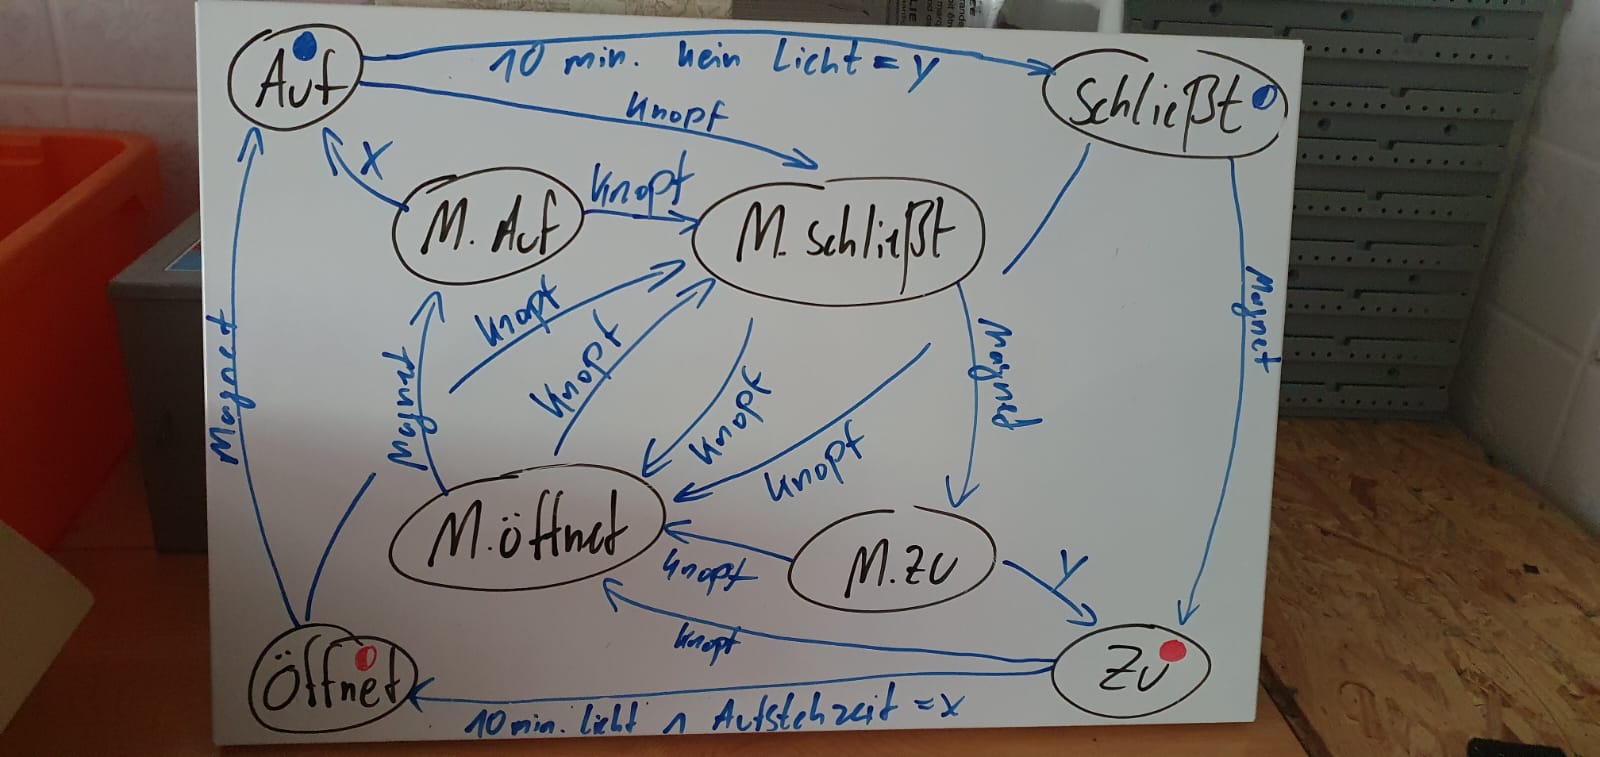 Auf
10 min. kein Licht = y
Schließt
Knopf
X
M. Auf
Knopf
M. schließt
Knopf
Knopf
Magnet
Magnet
Magnet
Magnet
Knopf
Knopf
M. öffnet
M. ZU
Knopf
Y
Knopf
Öffnet
ZU
10 min. licht ∧ Aufstehzeit = x